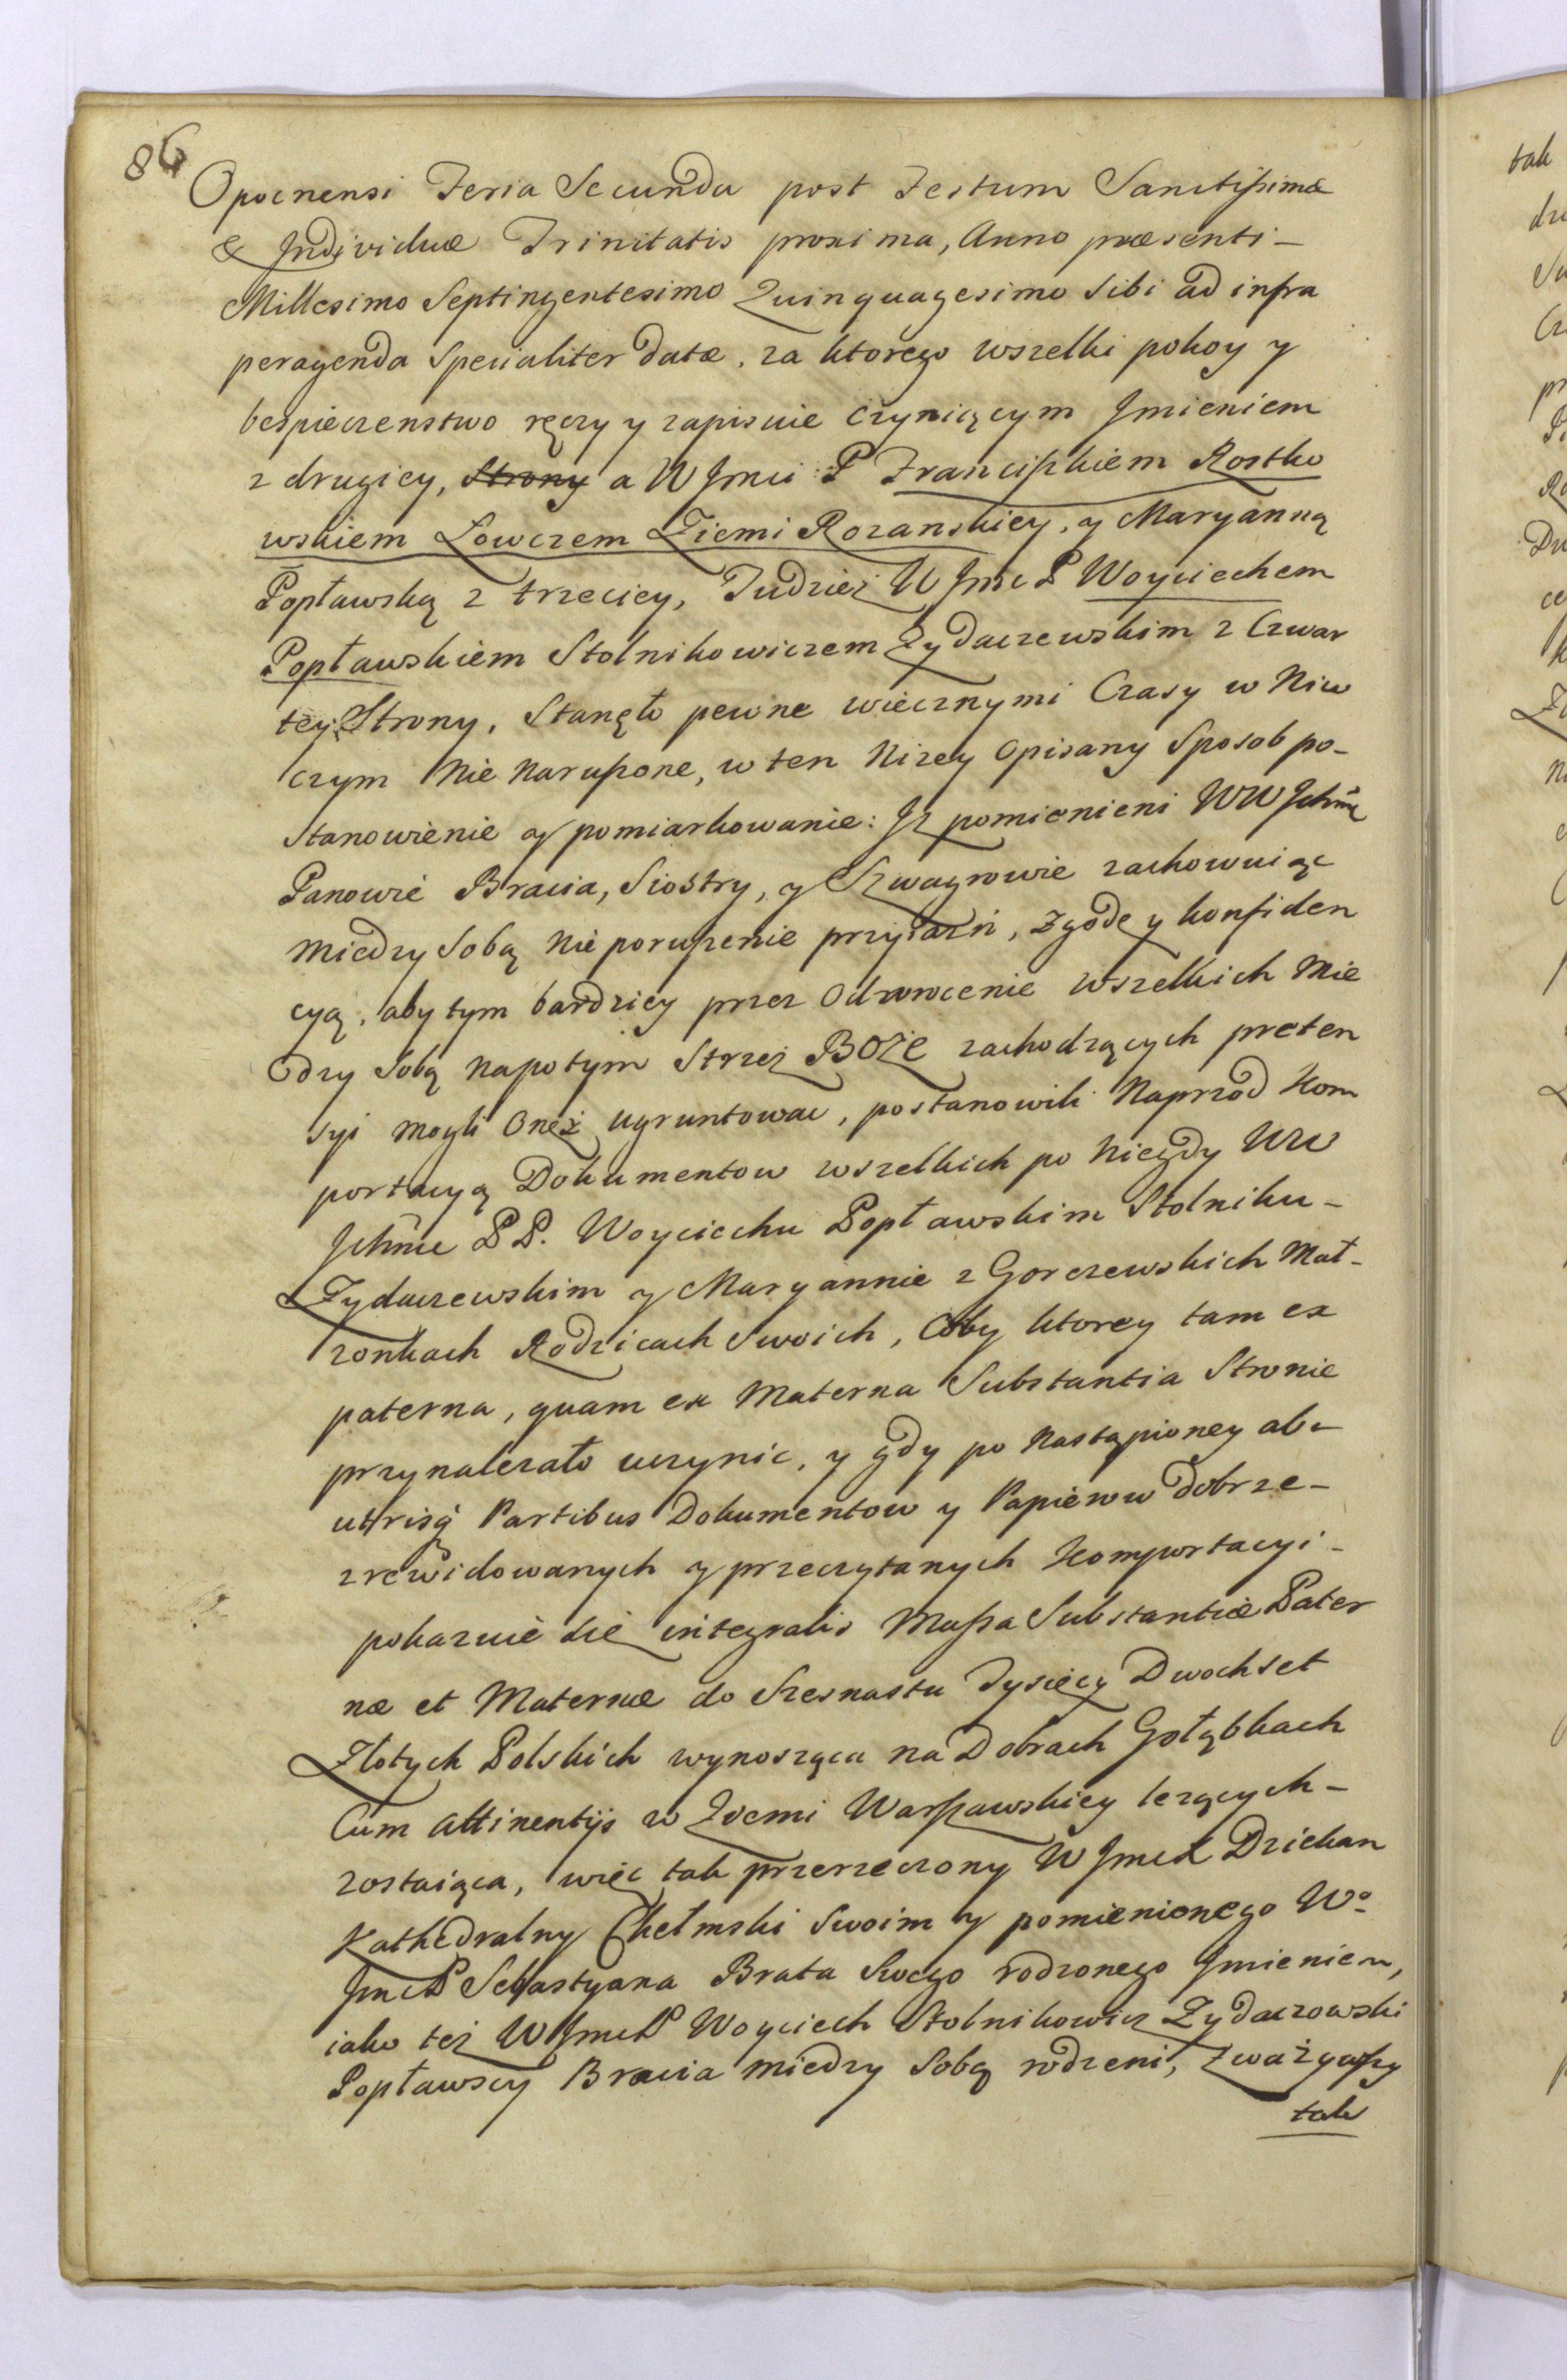 86
Opocnensi Feria Secunda post Festum Sanctissimæ
& Individuæ Trinitatis proxima, Anno præsenti –
Millesimo Septingentesimo Quinquagesimo Sibi ad infra
peragenda Specialiter datæ, za ktorego wszelki pokoy y
bespieczenstwo ręczy y zapisuie czyniącym Jmieniem
z drugiey, Strony a W Jmci P Franciszkiem Rostko
wskiem Łowczem Ziemi Rozanskiey, y Maryanną
Popławską z trzeciey, Tudziesz W Jmc P Woyciechem
Popławskiem Stolnikowiczem Zydaczewskim z Czwar
tey Strony, Stanęło pewne wiecznymi Czasy w Niw
czym Nie Naruszone, w ten Nizey Opisany Sposob po-
Stanowienie y pomiarkowanie: Jz pomienieni WW Jchmć
Panowie Bracia, Siostry, y Szwagrowie zachowuiąc
miedzy Sobą Nie poruszenie przyiazń, Zgode y konfiden
cyą, aby tym bardziey przez Odwrocenie wszelkich Mie
dzy Sobą napotym Strzeż BOZe zachodzących preten
syi mogli Oneż ugruntowac, postanowili Naprzod Kom
portacyą Dokumentow wszelkich po Niegdy WW
Jchmć PP. Woyciechu Popławskim Stolniku –
Zydaczewskim y Maryannie z Gorczewskich Mał-
zonkach Rodzicach Swoich, Coby ktorey tam ex
paterna, quam ex Materna Substantia Stronie
przynalezało uczynic, y gdy po Nastąpioney ab –
utrisq Partibus Dokumentow y Papierow dobrze –
zrewidowanych y przeczytanych Komportacyi –
pokazuie się integralis Massa Substantiæ Pater
næ et Maternæ do Szesnastu Tysięcy Dwochset
Złotych Polskich wynosząca na Dobrach Gołąbkach
Cum attinentijs w Ziemi Warszawskiey lezących –
zostaiąca, więc tak przerzeczony W Jmc X Dziekan
Kathedralny Chełmski Swoim y pomienionego Wo
Jmc P Sebastyana Brata Swego rodzonego Jmieniem,
iako tez W Jmc P Woyciech Stolnikowicz Zydaczowski
Popławscy Bracia miedzy Sobą rodzeni, Zważywszy
tak